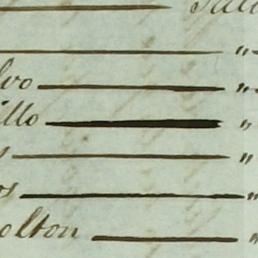 "
lvo "
illo "
s "
os "
olton "